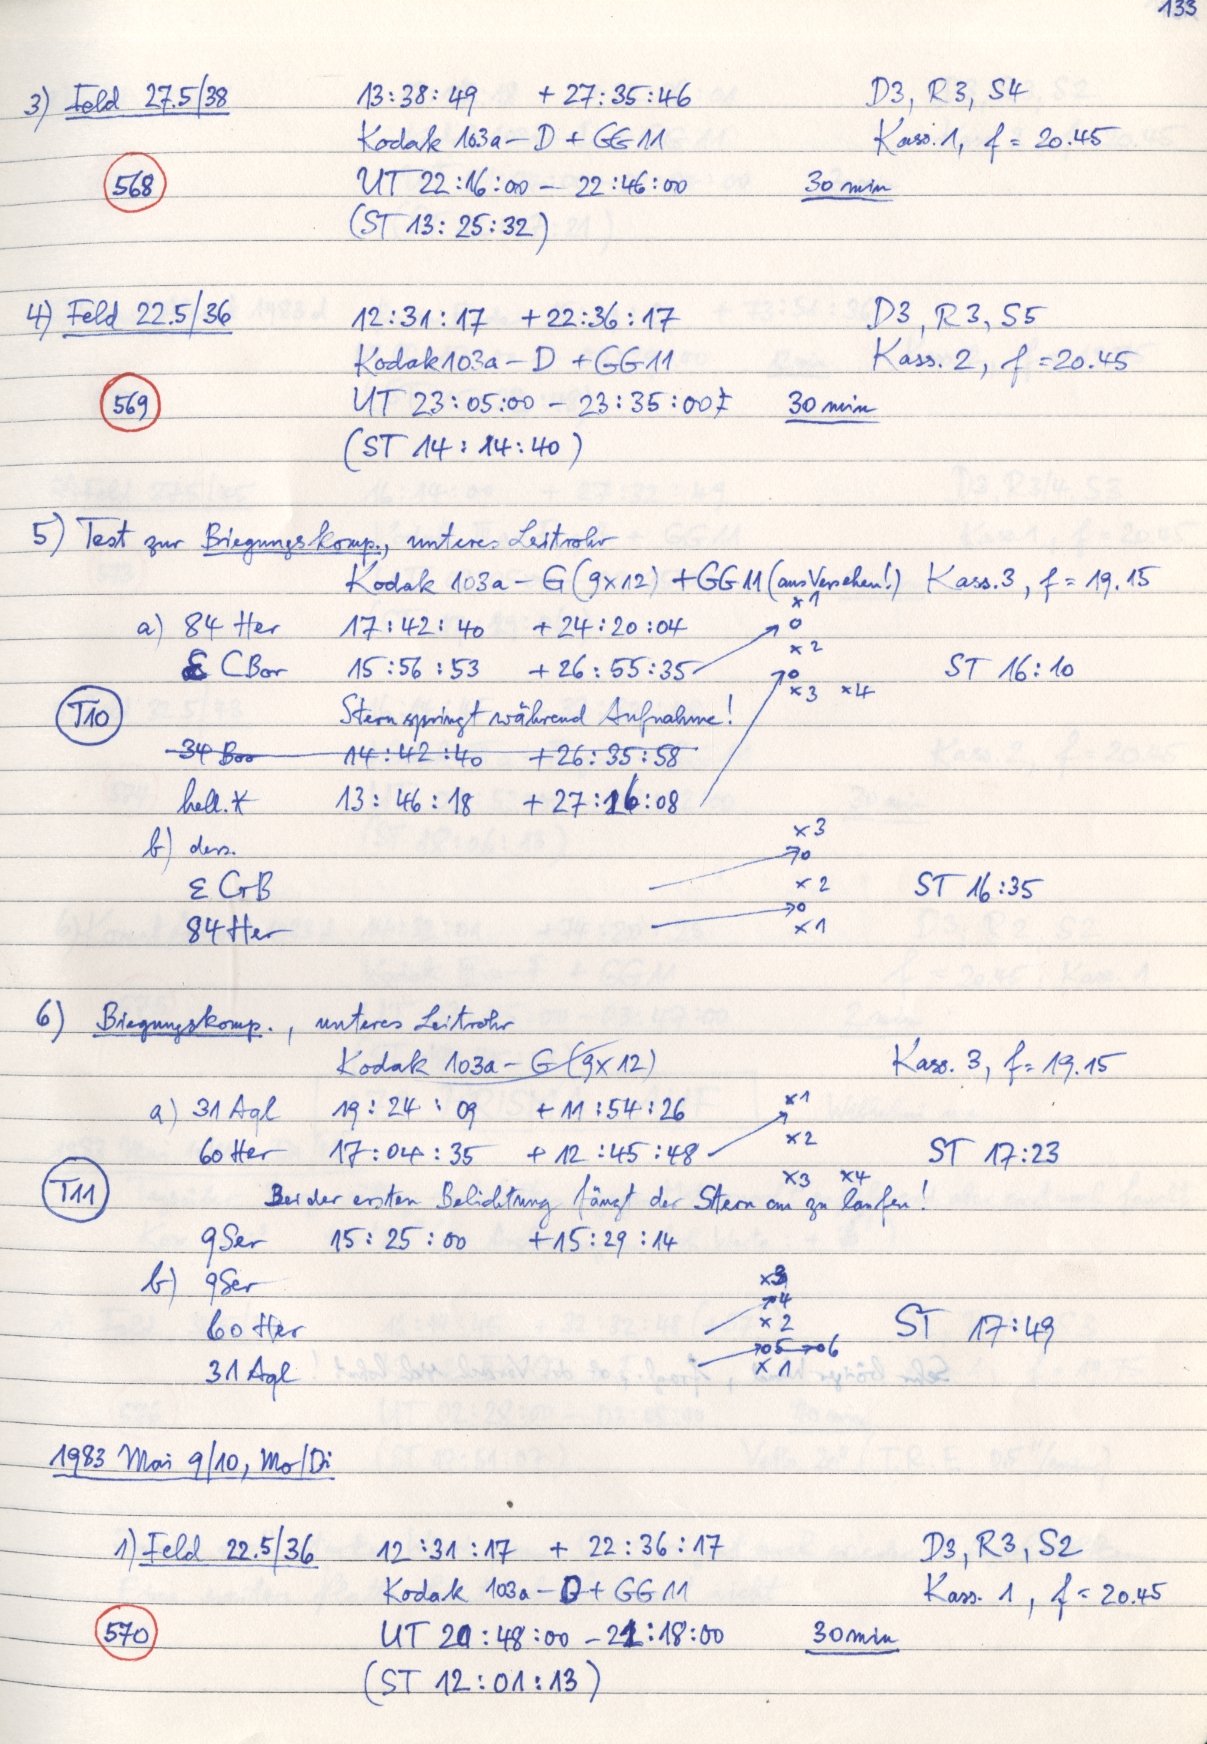 133
3) Feld 27.5/38 13:38:49 + 27:35:46 D3, R3, S4
Kodak 103a-D + GG11 Kass. 1, f = 20.45
568 UT 22:16:00 - 22:46:00 30 min
(ST 13:25:32)
4) Feld 22.5/36 12:31:17 + 22:36:17 D3, R3, S5
Kodak 103a-D + GG11 Kass. 2, f = 20.45
569 UT 23:05:00 - 23:35:00 30 min
(ST 14:14:40)
5) Test zur Biegungskomp., unteres Leitrohr
Kodak 103a-G (9x12) + GG11 (aus Versehen!) Kass. 3, f = 19.15
x1
a) 84 Her 17:42:40 + 24:20:04 o
x2
ε CBor 15:56:53 + 26:55:35 o ST 16:10
x3 x4
T10 Stern springt während Aufnahme!
34 Boo 14:42:40 + 26:35:58
hell.* 13:46:18 + 27:16:08
x3
b) ders. o
ε CrB x2 ST 16:35
o
84 Her x1
6) Biegungskomp., unteres Leitrohr
Kodak 103a-G (9x12) Kass. 3, f = 19.15
x1
a) 31 Aql 19:24:09 + 11:54:26
x2
60 Her 17:04:35 + 12:45:48 ST 17:23
x3 x4
T11 Bei der ersten Belichtung fängt der Stern an zu laufen!
9 Ser 15:25:00 + 15:29:14
b) 9 Ser x3
4
60 Her x2 ST 17:49
o5 o6
31 Aql x1
1983 Mai 9/10, Mo/Di
1) Feld 22.5/36 12:31:17 + 22:36:17 D3, R3, S2
Kodak 103a-D + GG11 Kass. 1, f = 20.45
570 UT 20:48:00 - 21:18:00 30 min
(ST 12:01:13)